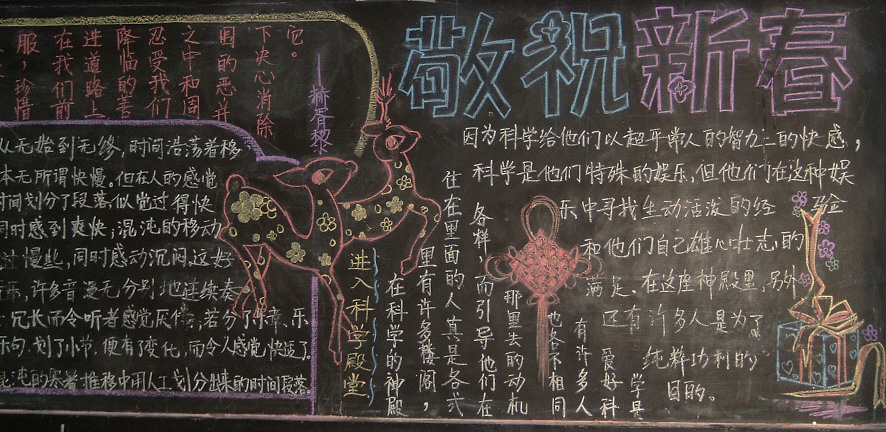 敬祝新春
它。
下决心消除
围的恶并
之中和周
忍受我们
降临的善
进道路上
在我们前
服，珍惜
从无始到无终，时间浩荡着移
本无所谓快慢。但在人的感觉
时间划分了段落似觉过得快
同时感到爽快；混沌的移动
过慢些，同时感动沉闷，这好
乐，许多音漫无分别地连续奏
冗长而令听者感觉厌倦；若分了乐章、乐
乐句，划了小节，便有变化，而令人感觉快适了。
混沌的寒暑推移中用人工划分出来的时间段落
进入科学殿堂
在科学的神殿
里有许多楼阁，
住在里面的人真是各式
各样，而引导他们在
那里去的动机
也各不相同
有许多人
爱好科
学是
因为科学给他们以超乎常人的智力上的快感，
科学是他们特殊的娱乐，但他们在这种娱
乐中寻找生动活泼的经验
和他们自己雄心壮志的
满足、在这座神殿里，另外
还有许多人是为了
纯粹功利的
目的。